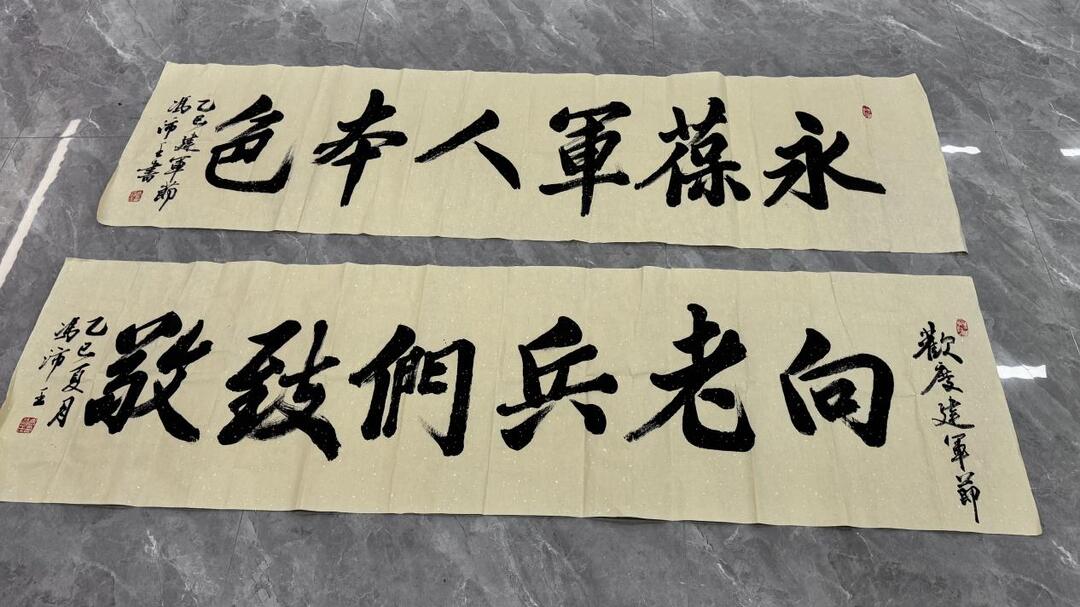 永葆軍人本色
乙巳建軍節
馮沛王書
歡度建軍節
向老兵們致敬
乙巳夏月
馮沛王